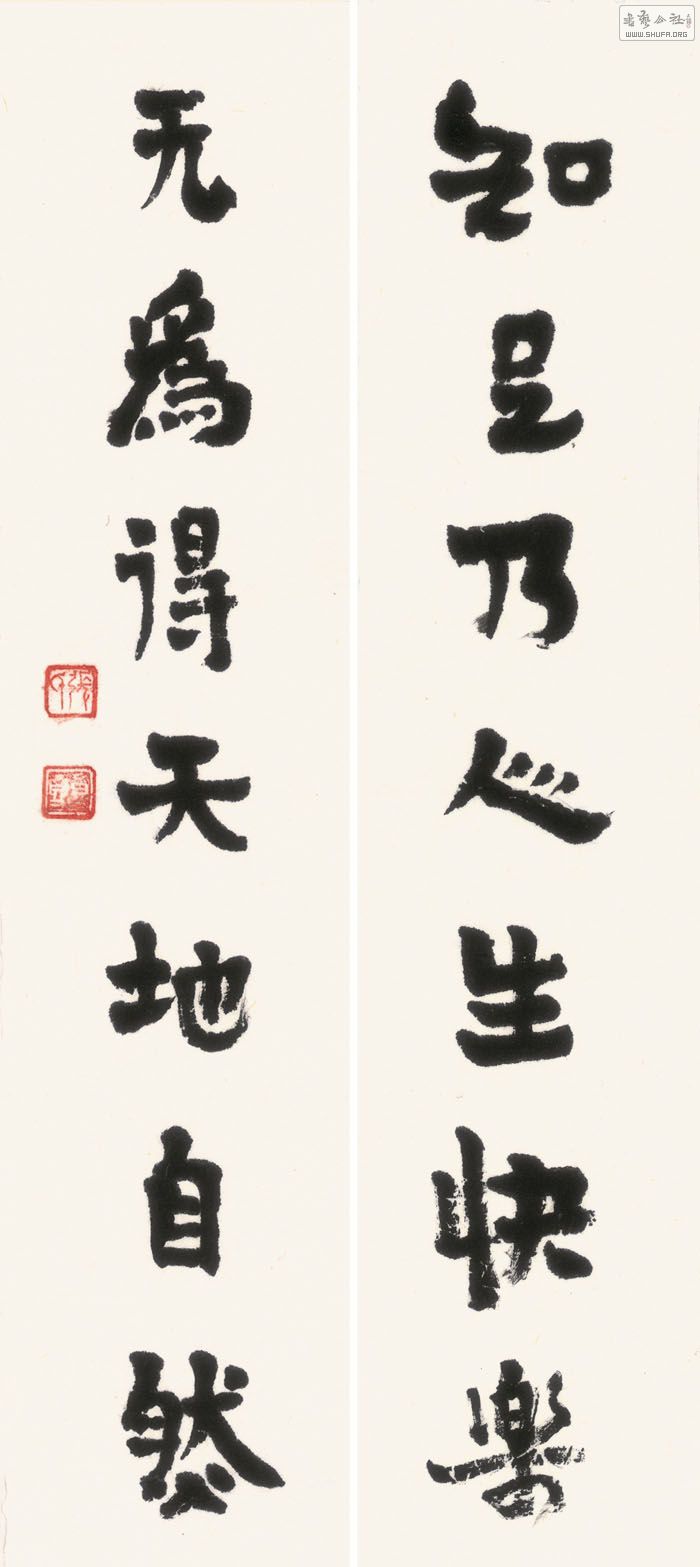 知足乃人生快樂
无為得天地自然
書藝公社
WWW.SHUFA.ORG